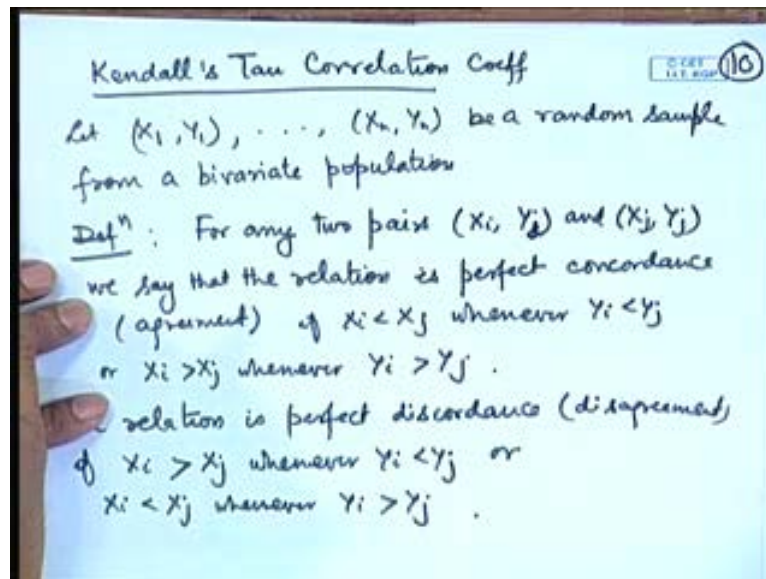 Kendall's Tau Correlation Coeff
© CET
I.I.T. KGP
110
Let (X₁, Y₁), . . . ., (Xₙ, Yₙ) be a random sample
from a bivariate population
Defⁿ : For any two pairs (Xi, Yi) and (Xj, Yj)
we say that the relation is perfect concordance
(agreement) if Xi < Xj whenever Yi < Yj
or Xi > Xj whenever Yi > Yj .
relation is perfect discordance (disagreement)
if Xi > Xj whenever Yi < Yj or
Xi < Xj whenever Yi > Yj .